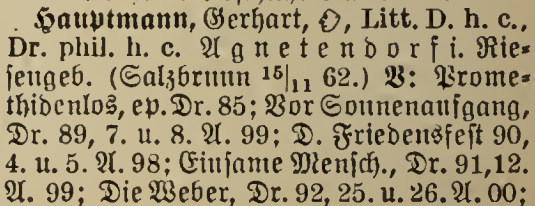 Hauptmann, Gerhart, ⚭, Litt. D. h. c.,
Dr. phil. h. c. Agnetendorf i. Rie=
sengeb. (Salzbrunn 15|11 62.) V: Prome=
thidenlos, ep. Dr. 85; Vor Sonnenaufgang,
Dr. 89, 7. u. 8. A. 99; D. Friedensfest 90,
4. u. 5. A. 98; Einsame Mensch., Dr. 91, 12.
A. 99; Die Weber, Dr. 92, 25. u. 26. A. 00;